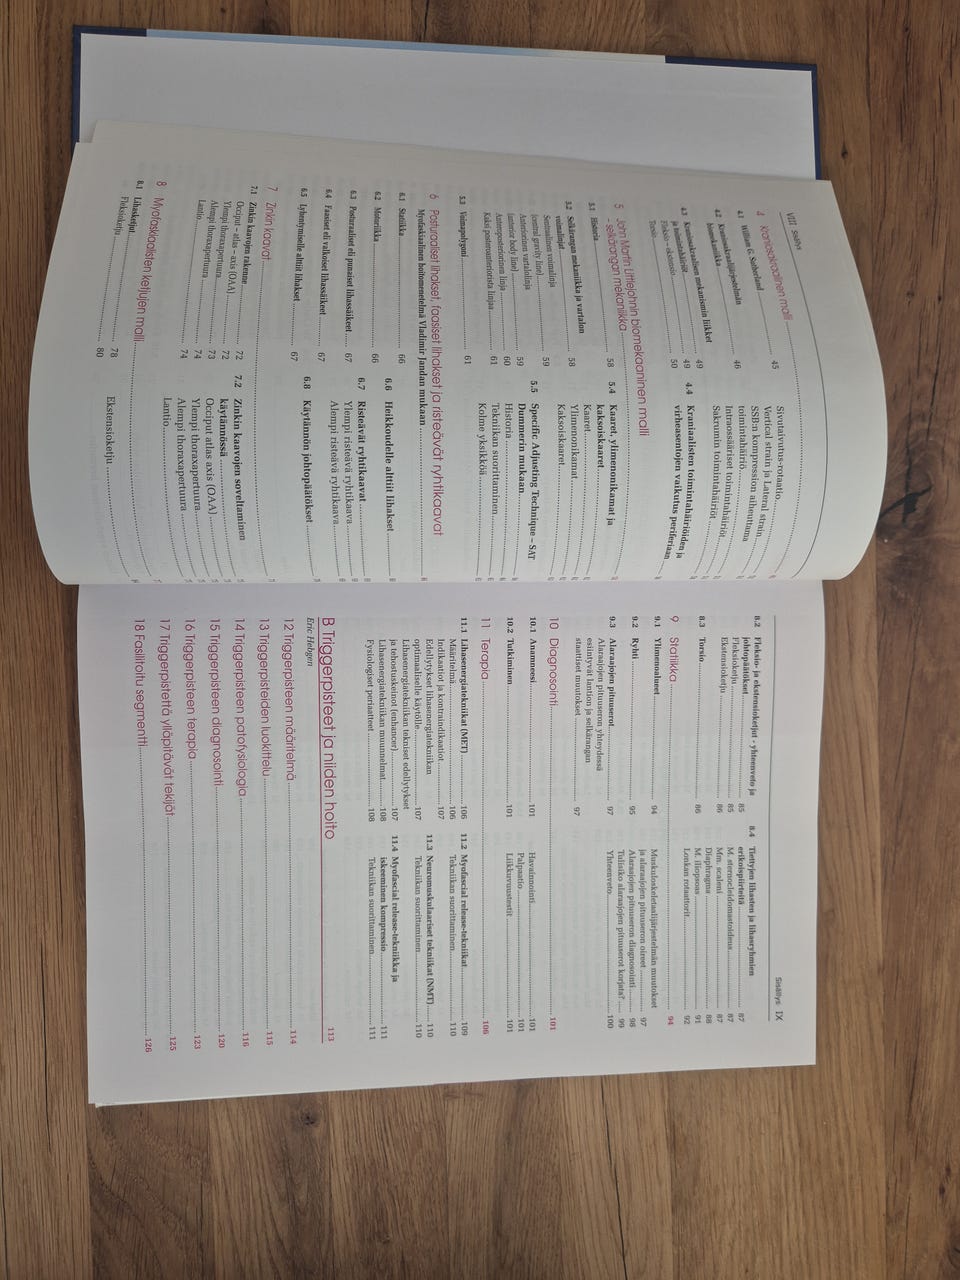 VIII Sisällys
4 Kraniosakraalinen malli
4.1 William G. Sutherland ..... 45
4.2 Kraniosakraalijärjestelmän
biomekaniikka ..... 46
4.3 Kraniosakraalisen mekanismin liikkeet
ja häiriötekijät ..... 49
Fleksio – ekstensio ..... 49
Torsio ..... 50
Sivutaivutus-rotaatio
Vertical strain ja Lateral strain
SSB:n kompression aiheuttama
toimintahäiriö
Intraossaariset toimintahäiriöt
Sakrumin toimintahäiriöt
4.4 Kraniaalisten toimintahäiriöiden ja
virheasentojen vaikutus periferiaan
5 John Martin Littlejohnin biomekaaninen malli
– selkärangan mekaniikka
5.1 Historia ..... 58
5.2 Selkärangan mekaniikka ja vartalon
voimalinjat ..... 58
Sentraalinen voimalinja
(central gravity line) ..... 59
Anteriorinen vartalolinja
(anterior body line) ..... 59
Anteroposteriorinen linja ..... 60
Kaksi posteroanteriorista linjaa ..... 61
5.3 Voimapolygoni ..... 61
5.4 Kaaret, ylimenonikamat ja
kaksoiskaaret
Kaaret
Ylimenonikamat
Kaksoiskaaret
5.5 Specific Adjusting Technique – SAT
Dummerin mukaan
Historia
Tekniikan suorittaminen
Kolme yksikköä
6 Posturaaliset lihakset, faasiset lihakset ja risteävät ryhtikaavat
Myofaskiaalinen hoitomenetelmä Vladimir Jandan mukaan
6.1 Statiikka ..... 66
6.2 Motoriikka ..... 66
6.3 Posturaaliset eli punaiset lihassäikeet ..... 67
6.4 Faasiset eli valkoiset lihassäikeet ..... 67
6.5 Lyhentymiselle alttiit lihakset ..... 67
6.6 Heikkoudelle alttiit lihakset
6.7 Risteävät ryhtikaavat
Ylempi risteävä ryhtikaava
Alempi risteävä ryhtikaava
6.8 Käytännön johtopäätökset
7 Zinkin kaavat
7.1 Zinkin kaavojen rakenne
Occiput – atlas – axis (OAA) ..... 72
Ylempi thoraxapertuura ..... 72
Alempi thoraxapertuura ..... 73
Lantio ..... 74
7.2 Zinkin kaavojen soveltaminen
käytännössä
Occiput atlas axis (OAA)
Ylempi thoraxapertuura
Alempi thoraxapertuura
Lantio
8 Myofaskiaalisten ketjujen malli
8.1 Lihasketjut ..... 78
Fleksioketju ..... 80
Ekstensioketju
Sisällys IX
8.2 Fleksio- ja ekstensioketjut - yhteenveto ja
johtopäätökset ..... 85
Fleksioketju ..... 85
Ekstensioketju ..... 86
8.3 Torsio ..... 86
8.4 Tiettyjen lihasten ja lihasryhmien
erikoispiirteitä ..... 87
M. sternocleidomastoideus ..... 87
Mm. scaleni ..... 87
Diaphragma ..... 88
M. iliopsoas ..... 91
Lonkan rotaattorit ..... 92
9 Statiikka ..... 94
9.1 Ylimenoalueet ..... 94
9.2 Ryhti ..... 95
9.3 Alaraajojen pituuserot ..... 97
Alaraajojen pituuseron yhteydessä
esiintyvät lantion ja selkärangan
staattiset muutokset ..... 97
Muskuloskeletaalijärjestelmän muutokset
ja alaraajojen pituuseron oireet ..... 97
Alaraajojen pituuseron diagnosointi ..... 98
Tulisiko alaraajojen pituuserot korjata? ..... 99
Yhteenveto ..... 100
10 Diagnosointi ..... 101
10.1 Anamneesi ..... 101
10.2 Tutkiminen ..... 101
Havainnointi ..... 101
Palpaatio ..... 101
Liikkuvuustestit ..... 101
11 Terapia ..... 106
11.1 Lihasenergiatekniikat (MET) ..... 106
Määritelmä ..... 106
Indikaatiot ja kontraindikaatiot ..... 107
Edellytykset lihasenergiatekniikan
optimaaliselle käytölle ..... 107
Lihasenergiatekniikan tekniset edellytykset
ja tehostuskeinot (enhancer) ..... 107
Lihasenergiatekniikan muunnelmat ..... 108
Fysiologiset periaatteet ..... 108
11.2 Myofascial release-tekniikat ..... 109
Tekniikan suorittaminen ..... 110
11.3 Neuromuskulaariset tekniikat (NMT) ..... 110
Tekniikan suorittaminen ..... 110
11.4 Myofascial release-tekniikka ja
iskeeminen kompressio ..... 111
Tekniikan suorittaminen ..... 111
B Triggerpisteet ja niiden hoito ..... 113
Eric Hebgen
12 Triggerpisteen määritelmä ..... 114
13 Triggerpisteiden luokittelu ..... 115
14 Triggerpisteen patofysiologia ..... 116
15 Triggerpisteen diagnosointi ..... 120
16 Triggerpisteen terapia ..... 123
17 Triggerpistettä ylläpitävät tekijät ..... 125
18 Fasilitoitu segmentti ..... 126